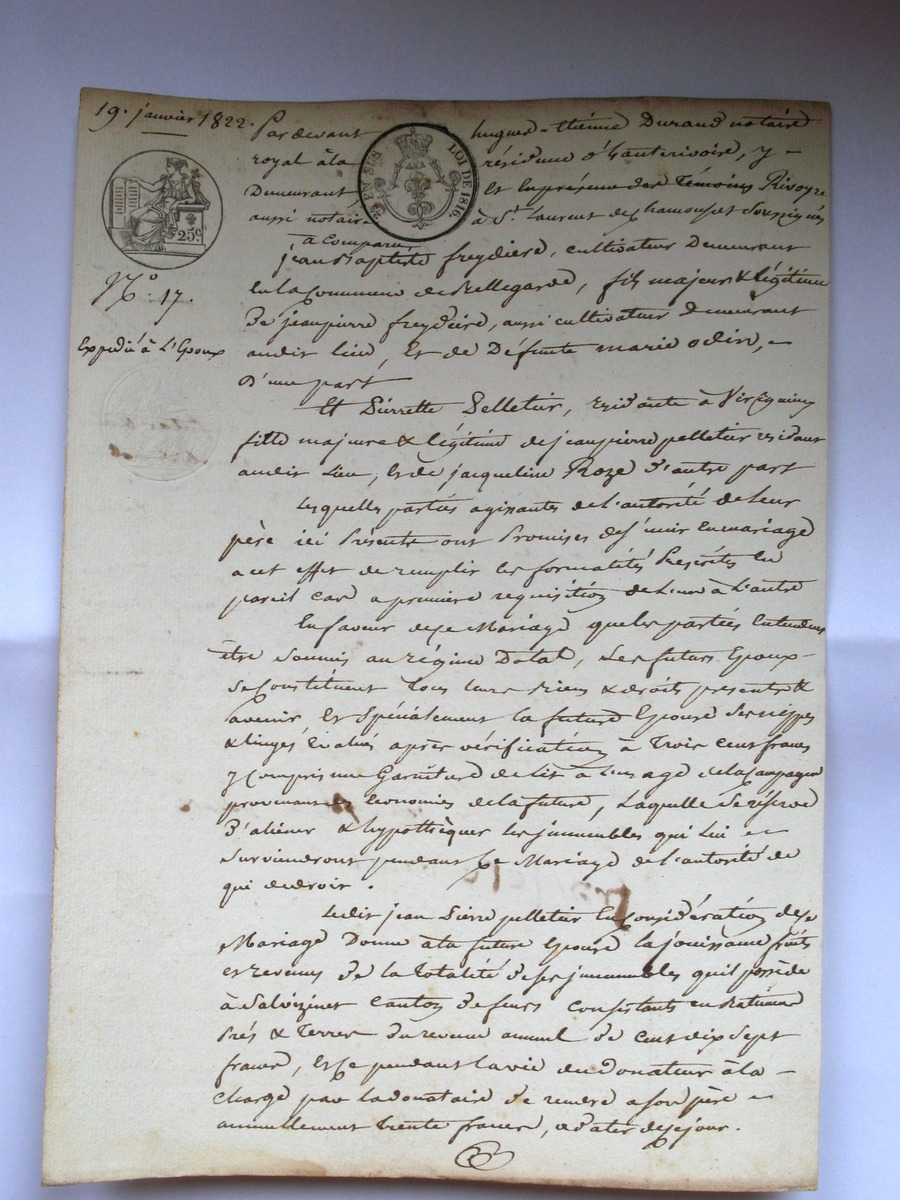 19. janvier 1822.
Pardevant hugues-étienne Durand notaire
royal à la résidence d'hauterivoire, y
Demeurant Et En présence des Témoins Rivoyre
aussi notaire à St. Laurent de chamousset Soussignés
a Comparu,
jean Baptiste freydiere, cultivateur Demeurant
En la Commune de Bellegarde, fils majeur & légitime
De jeanpierre freydiere, aussi cultivateur demeurant
audit lieu, Et de Défunte marie odin,
D'une part
Et Pierrette Pelletier, residante à
fille majeure & légitime de jeanpierre pelletier residant
audit Lieu, & de jacqueline Roze d'autre part
Lesquelles parties agissantes de l'autorité de Leur
père ici Présents ont Promises de s'unir En mariage
a cet effet de remplir les formalités Prescrites En
pareil cas a première requisition de L'une à L'autre
En faveur de ce Mariage que les parties Entendent
être Soumis au régime Dotal, Les futurs Epoux
Se Constituent Tous leurs Biens & droits présents &
avenir Et Spécialement la future Epouse Ses nippes
& linges Evalués après vérification à Trois cent francs
y Compris une Garniture de lit à L'usage de la Campagne
provenant des économies de la future, Laquelle Se réserve
D'aliéner & hypothèquer les immeubles qui Lui
Surviendront pendant Le Mariage de l'autorité de
qui de droit.
Ledit jean Pierre pelletier En Considération de ce
Mariage Donne à la future Epouse la jouissance fruits
et revenus de la Totalité de ses immeubles qu'il possède
à Salvizinet canton de feurs Consistants en Batiments
Prés & Terres du revenu annuel de cent dix Sept
francs, Et Ce pendant la vie du donateur à la
charge par la donataire de rendre a son père
annuellement trente francs, a dater de ce jour.
25 EN SUS LOI DE 1816.
25c.
No. 17.
Expédié à L'Epoux